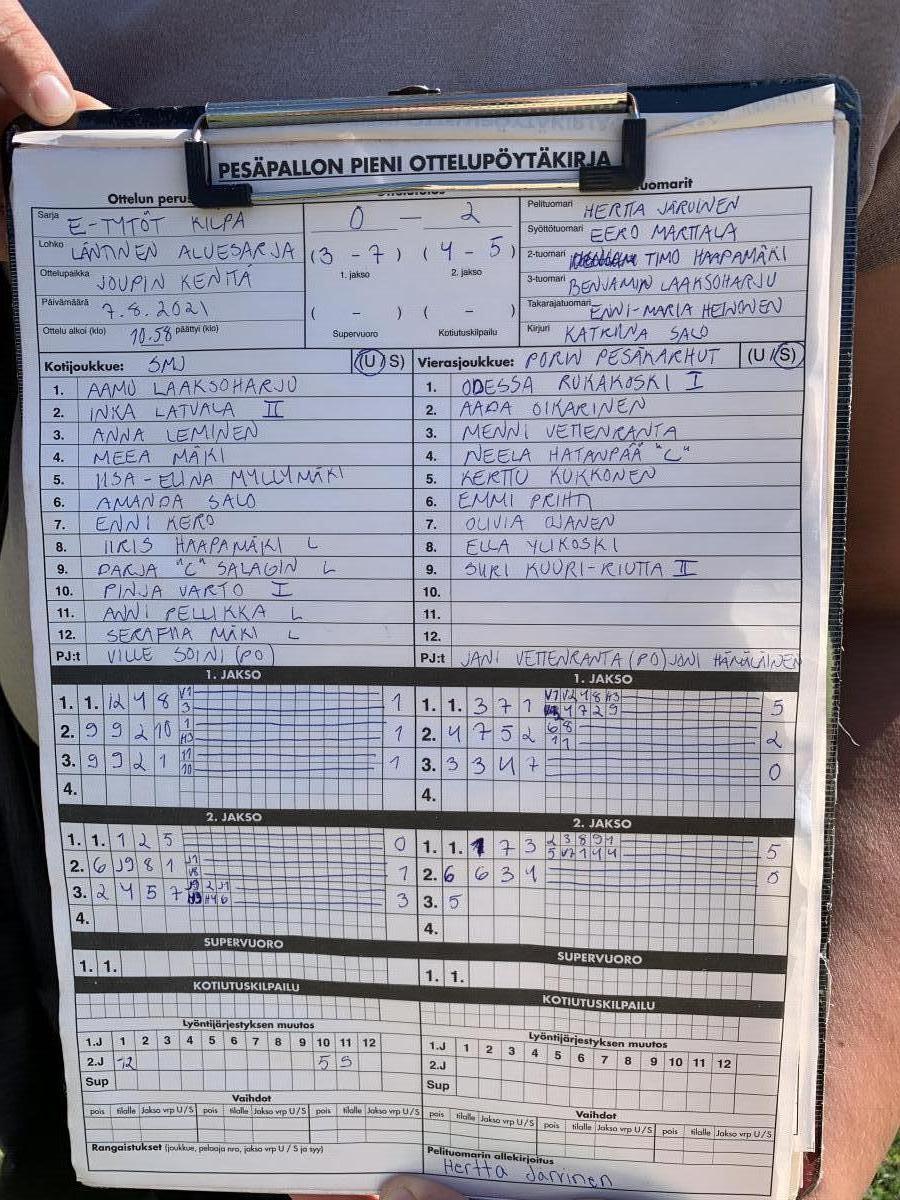 PESÄPALLON PIENI OTTELUPÖYTÄKIRJA
Ottelun perus
tuomarit
Sarja E-TYTÖT KILPA
Lohko LÄNTINEN ALUESARJA
Ottelupaikka JOUPIN KENTÄ
Päivämäärä 7.8.2021
Ottelu alkoi (klo) 10.58 päättyi (klo)
0 — 2
(3 - 7) (4 - 5)
1. jakso 2. jakso
( - ) ( - )
Supervuoro Kotiutuskilpailu
Pelituomari HERTTA JÄRVINEN
Syöttötuomari EERO MARTTALA
2-tuomari TIMO HAAPAMÄKI
3-tuomari BENJAMIN LAAKSOHARJU
Takarajatuomari ENNI-MARIA HEINONEN
Kirjuri KATRIINA SALO
Kotijoukkue: SMJ (U / S)
1. AAMU LAAKSOHARJU
2. INKA LATVALA II
3. ANNA LEMINEN
4. MEEA MÄKI
5. IISA-ELINA MYLLYMÄKI
6. AMANDA SALO
7. ENNI KERO
8. IIRIS HAAPAMÄKI L
9. DARJA "C" SALAGIN L
10. PINJA VARTO I
11. ANNI PELLIKKA L
12. SERAFIIA MÄKI L
PJ:t VILLE SOINI (PO)
Vierasjoukkue: PORIN PESÄKARHUT (U / S)
1. ODESSA RUKAKOSKI I
2. AADA OIKARINEN
3. MENNI VETTENRANTA
4. NEELA HATANPÄÄ "C"
5. KERTTU KUKKONEN
6. EMMI PRIHTI
7. OLIVIA OJANEN
8. ELLA YLIKOSKI
9. SURI KUURI-RIUTTA II
10.
11.
12.
PJ:t JANI VETTENRANTA (PO) JONI HÄMÄLÄINEN
1. JAKSO
1. 1. 12 4 8 V1 3 1
2. 9 9 2 10 1 H3 1
3. 9 9 2 1 11 10 1
4.
1. JAKSO
1. 1. 3 7 1 V1 V2 4 8 H3 4 7 2 9 5
2. 4 7 5 2 6 8 1 1 2
3. 3 3 4 7 0
4.
2. JAKSO
1. 1. 1 2 5 0
2. 6 J9 8 1 J1 V8 1
3. 2 4 5 7 J9 2 J1 H4 6 3
4.
2. JAKSO
1. 1. 1 7 3 2 3 8 9 1 5 V7 1 4 4 5
2. 6 6 3 1 0
3. 5
4.
SUPERVUORO
1. 1.
SUPERVUORO
1. 1.
KOTIUTUSKILPAILU
KOTIUTUSKILPAILU
Lyöntijärjestyksen muutos
1.J 1 2 3 4 5 6 7 8 9 10 11 12
2.J 12 5 9
Sup
Lyöntijärjestyksen muutos
1.J 1 2 3 4 5 6 7 8 9 10 11 12
2.J
Sup
Vaihdot
pois tilalle Jakso vrp U / S pois tilalle Jakso vrp U / S pois tilalle Jakso vrp U / S
Vaihdot
pois tilalle Jakso vrp U / S pois tilalle Jakso vrp U / S pois tilalle Jakso vrp U / S
Rangaistukset (joukkue, pelaaja nro, jakso vrp U / S ja syy)
Pelituomarin allekirjoitus
Hertta Järvinen